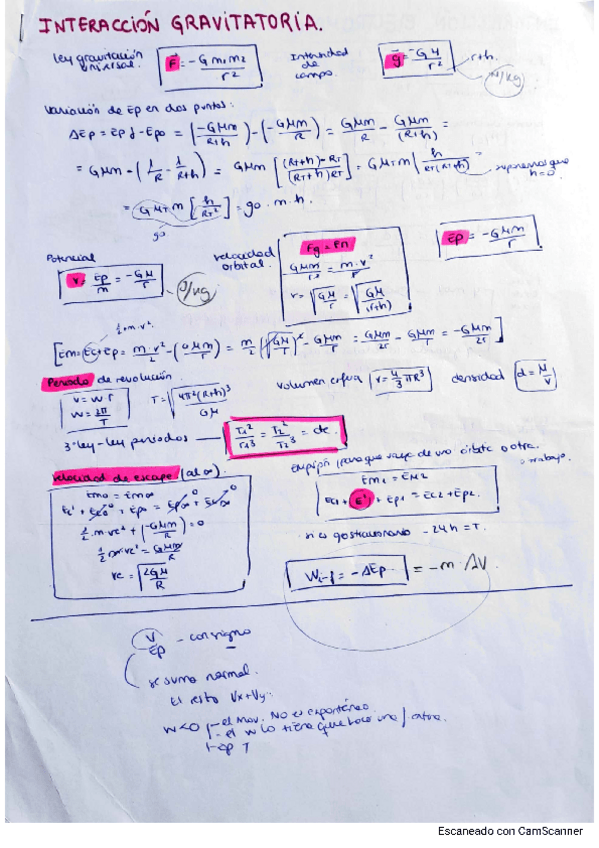 INTERACCIÓN GRAVITATORIA.
Ley gravitación universal. F = -G m₁m₂ / r²
Intensidad de campo. g = -G M / r² r+h. N/kg
Variación de Ep en dos puntos:
ΔEp = Epf - Ep₀ = (-GMm / R+h) - (-GMm / R) = GMm / R - GMm / (R+h) =
= GMm · (1/R - 1/R+h) = GMm [(RT+h) - RT / (RT+h) RT] = GMT m (h / RT(RT+h)) =
suponemos que h=0
= GMT m [h / RT²] = g₀ · m · h.
g₀
Potencial V = Ep / m = -GM / r J/kg
velocidad orbital. Fg = Fn
GMm / r² = m · v² / r
v = √(GM / r) = √(GM / (r+h))
Ep = -GMm / r
½ · m · v².
[Em = Ec + Ep = m · v² / 2 - (GMm / r) = m/2 (√(GM / r))² - GMm / r = GMm / 2r - GMm / r = -GMm / 2r]
Periodo de revolución.
v = w r
w = 2π / T
T = √(4π²(R+h)³ / GM)
volumen esfera V = 4/3 πR³ densidad d = M / V
3ª ley - ley periodos T₁² / r₁³ = T₂² / r₂³ = cte.
Velocidad de escape (al ∞).
Em₀ = Em∞
½ · m · ve² + (-GMm / R) = 0
½ m · ve² = GMm / R
ve = √(2GM / R)
para que vaya de una órbita a otra.
Trabajo.
Em₁ = Em₂
Ec₁ + E' + Ep₁ = Ec₂ + Ep₂.
geostacionario - 24h = T.
Wi-f = -ΔEp. = -m · ΔV
V
Ep - con signo
se suma normal.
El resto Vx+Vy.
W<0 - el mov. No es espontáneo.
- el W lo tiene que hacer una f. extra.
- Ep ↑
Escaneado con CamScanner